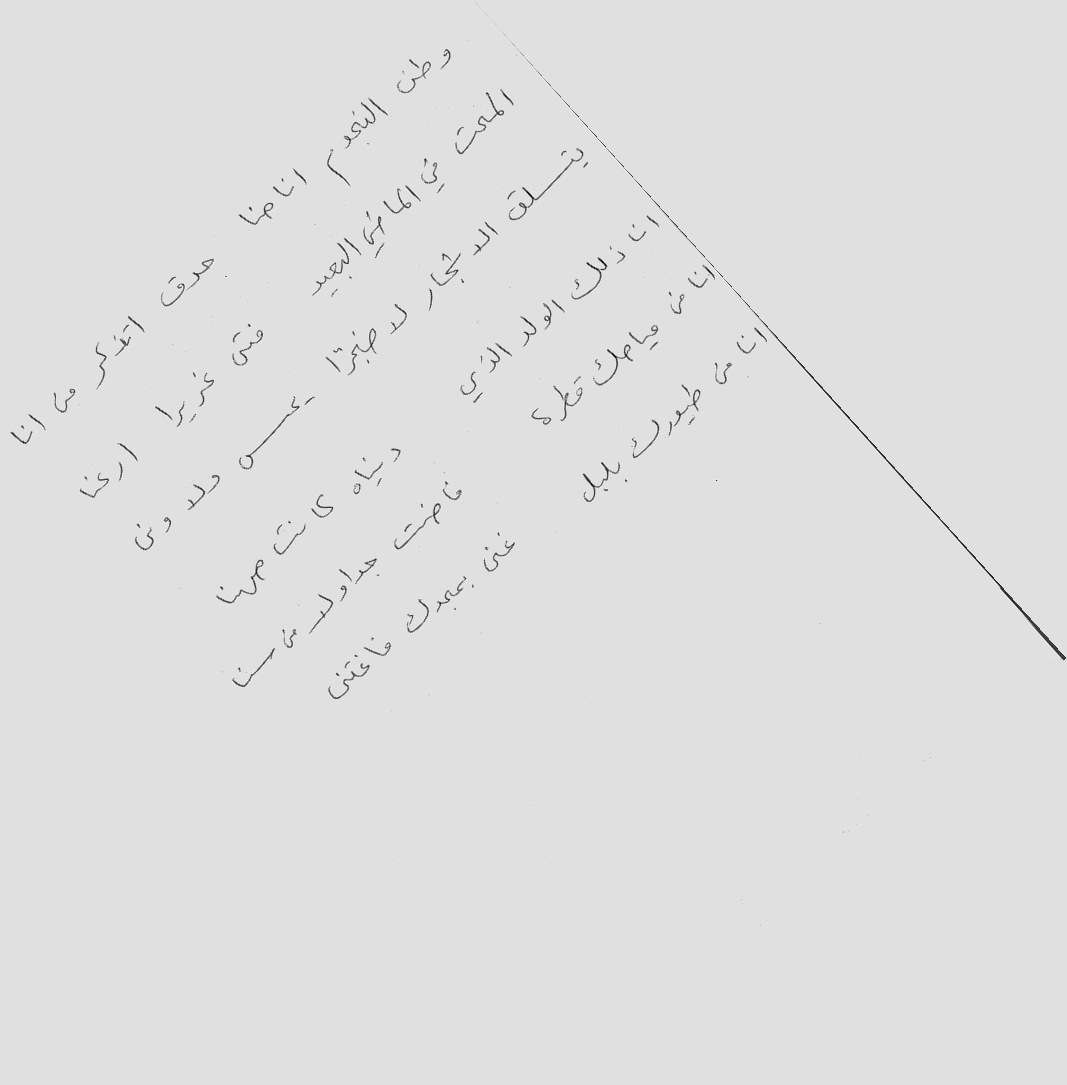 وطن النجوم انا هنا حدق اتذكر من انا
المحت في الماضي البعيد فتى غريرا ارعنا
يتسلق الاشجار لا ضجرًا يحس ولا ونى
انا ذلك الولد الذي دنياه كانت ههنا
انا من مياهك قطرة فاضت جداولا من سنا
انا من طيورك بلبل غنى بمجدك فاغتنى